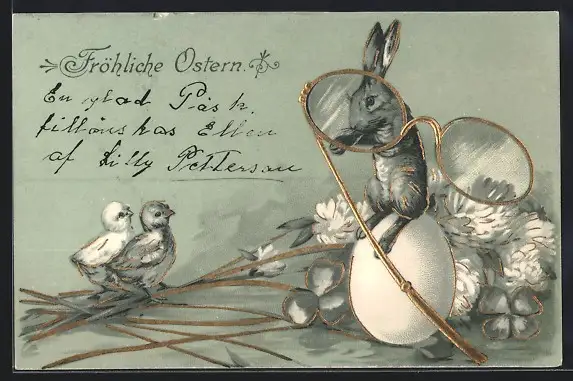 Fröhliche Ostern.
En glad Påsk
tillönskas Ellen
af Lilly Petterson